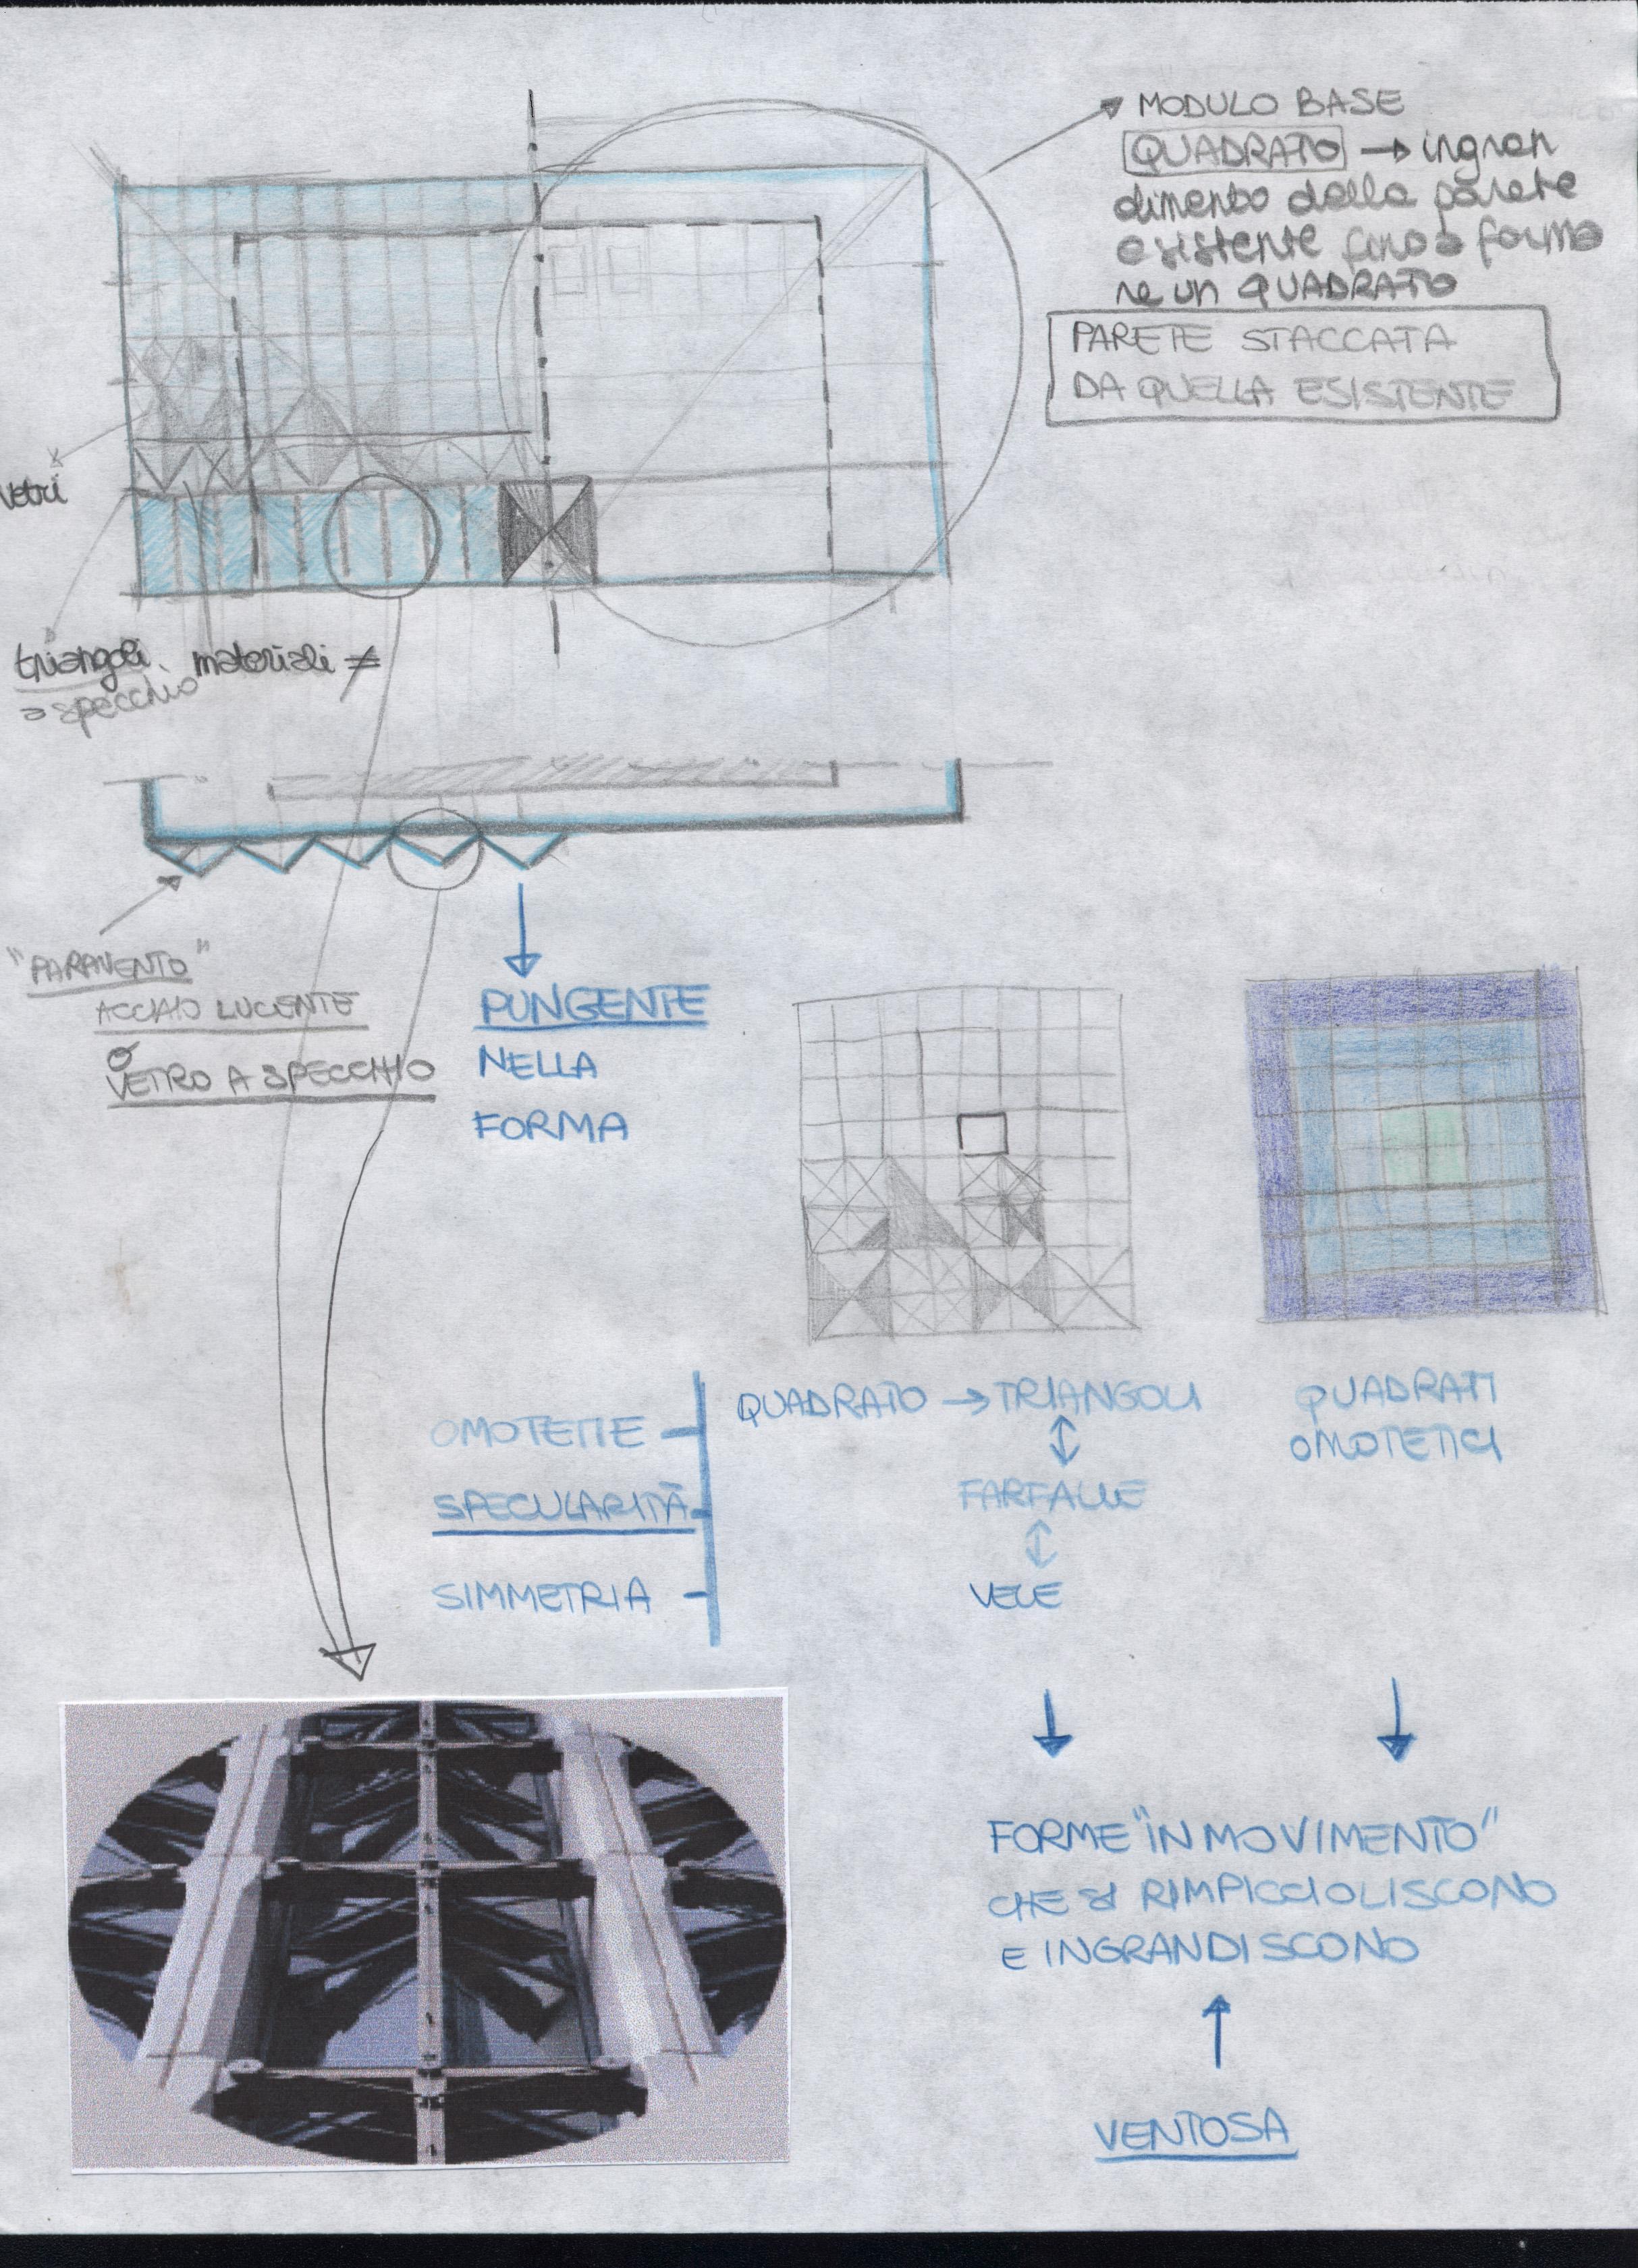 MODULO BASE
QUADRATO → ingran
dimento della parete
esistente fino a forma
re un QUADRATO
PARETE STACCATA
DA QUELLA ESISTENTE
vetri
triangoli materiali ≠
a specchio
"PARAVENTO"
ACCIAIO LUCENTE
O
VETRO A SPECCHIO
PUNGENTE
NELLA
FORMA
OMOTETIE
SPECULARITÀ
SIMMETRIA
QUADRATO → TRIANGOLI
FARFALLE
VELE
QUADRATI
OMOTETICI
FORME "IN MOVIMENTO"
CHE SI RIMPICCIOLISCONO
E INGRANDISCONO
VENTOSA